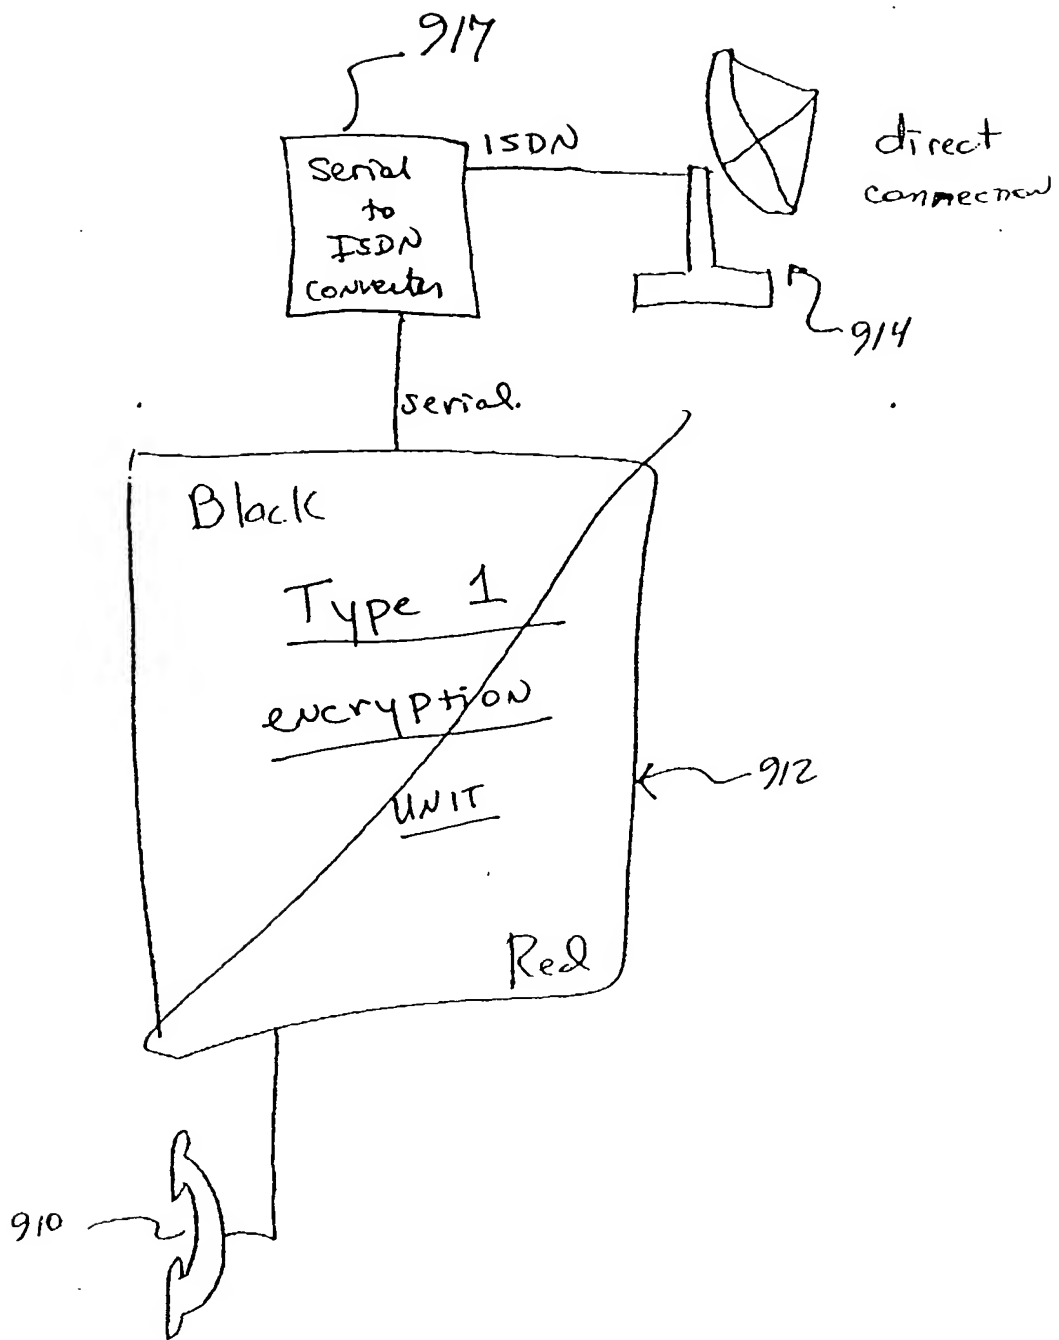 917
ISDN
Serial
to
ISDN
Converter
direct
connection
914
serial.
Black
Type 1
encryption
UNIT
912
Red
910